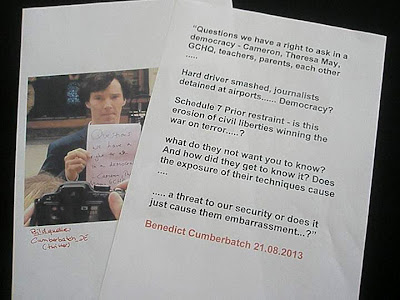 "Questions we have a right to ask in a
democracy - Cameron, Theresa May,
GCHQ, teachers, parents, each other
.....
Hard driver smashed, journalists
detained at airports...... Democracy?
Schedule 7 Prior restraint - is this
erosion of civil liberties winning the
war on terror.....?
what do they not want you to know?
And how did they get to know it? Does
the exposure of their techniques cause
....
..... a threat to our security or does it
just cause them embarrassment...?"
Benedict Cumberbatch 21.08.2013
Questions
we have a
right to ask
in a democracy
- Cameron,
Bildquelle
Cumberbatch.DE
(twitter)